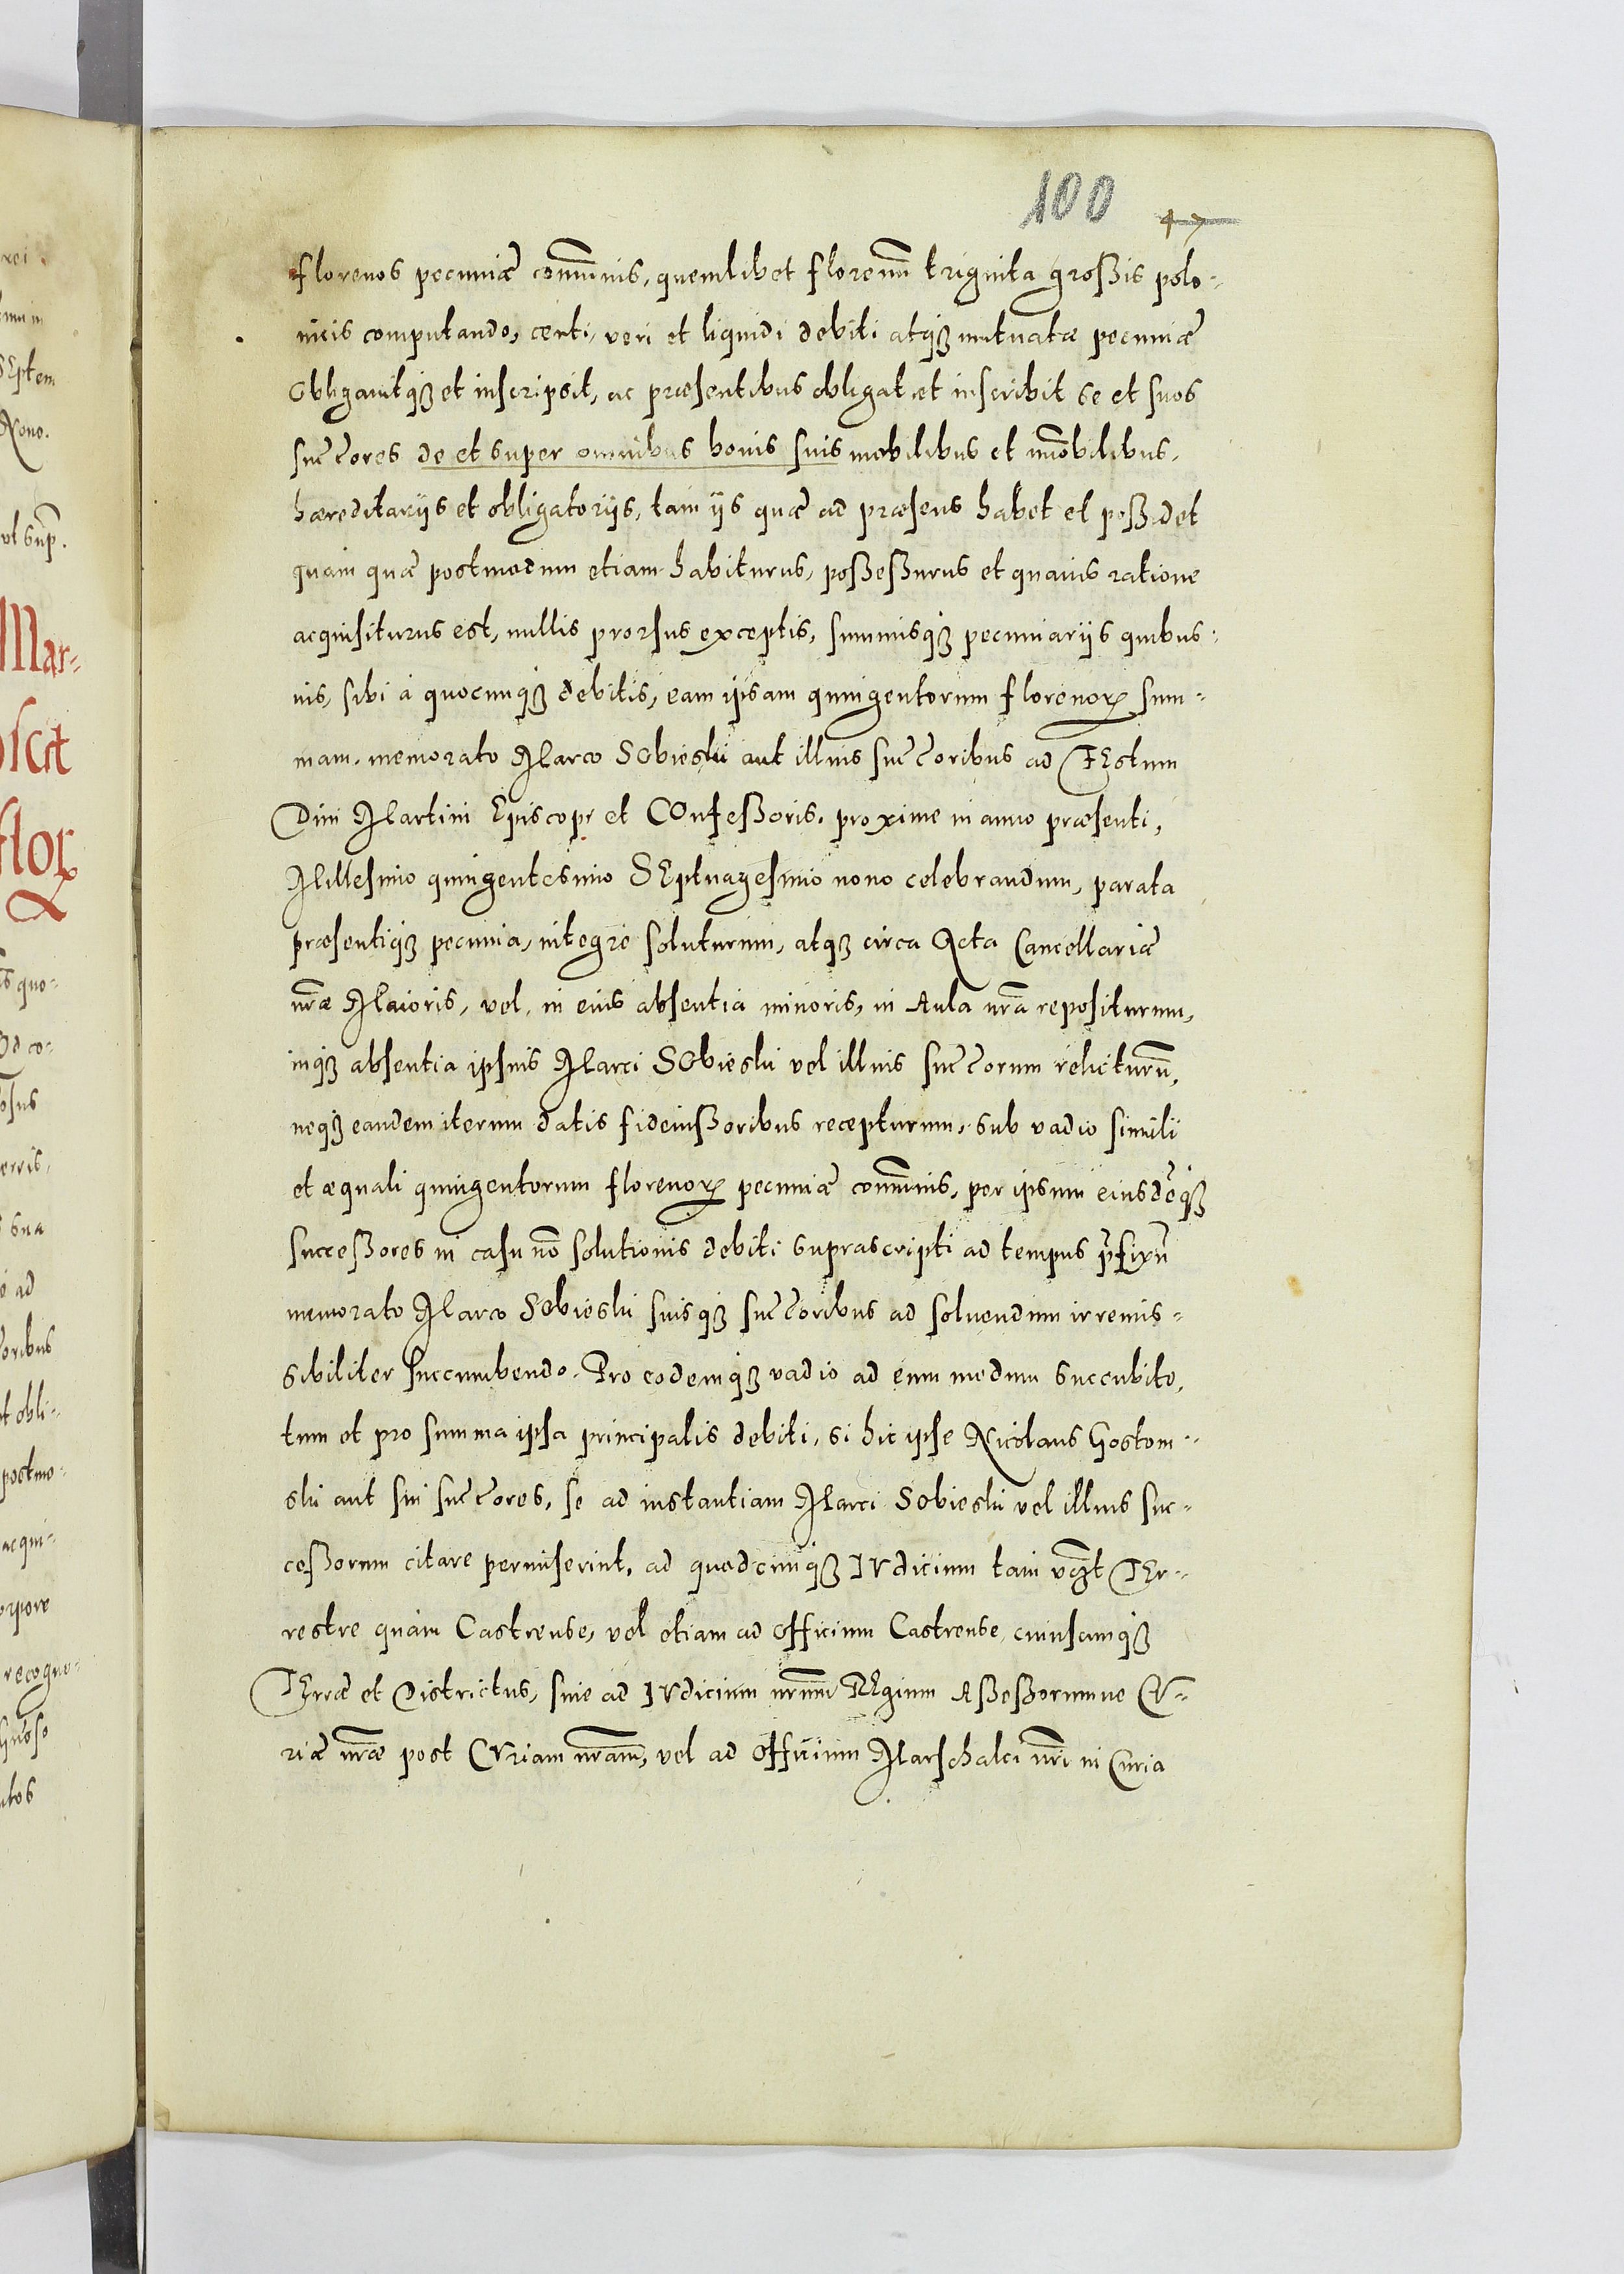 100
47
florenos pecuniæ com̄unis, quemlibet florenū triginta großis polo-
nicis computando, certi, veri et liquidi debiti atqꝫ mutuatæ pecuniæ
Obligauitqꝫ et inscripsit, ac præsentibus obligat et inscribit se et suos
succ̄ores de et super omnibus bonis suis mobilibus et im̄obilibus,
hæreditarijs et obligatorijs, tam ijs quæ ad præsens habet et poßidet
quam quæ postmodum etiam habiturus, poßeßurus et quauis ratione
acquisiturus est, nullis prorsus exceptis, summisqꝫ pecuniarijs quibus-
uis, sibi à quocunqꝫ debitis, eam ipsam quingentorum florenoꝝ sum-
mam, memorato Marco Sobieski aut illius succ̄oribus ad FEstum
Diui Martini Episcopi et COnfeßoris, proxime in anno præsenti,
Millesimo quingentesimo SEptuagesimo nono celebrandum, parata
præsentiqꝫ pecunia, integre soluturum, atqꝫ circa Acta Cancellariæ
nr̄æ Maioris, vel, in eius absentia minoris, in Aula nr̄a repositurum,
inqꝫ absentia ipsius Marci SObieski vel illius succ̄orum relicturū,
neqꝫ eandem iterum datis fideiußoribus recepturum, sub vadio simili
et æquali quingentorum florenoꝝ pecuniæ com̄unis, per ipsum eiusdēqꝫ
succeßores in casu nō solutionis debiti suprascripti ad tempus p̄fixū
memorato Marco Sobieski suisqꝫ succ̄oribus ad soluendum irremis-
sibiliter succumbendo. Pro eodemqꝫ vadio ad eum modum succubito,
tum et pro summa ipsa principalis debiti, si hic ipse Nicolaus Gostom-
ski aut sui succ̄ores, se ad instantiam Marci Sobieski vel illius suc-
ceßorum citare permiserint, ad quodcunqꝫ IVdicium tam vꝫt TEr-
restre quàm Castrense, vel etiam ad Officium Castrense, cuiuscunqꝫ
TErræ et Districtus, siue ad IVdicium nr̄um REgium Aßeßorumue CV-
riæ nr̄æ post CVriam nr̄am, vel ad Officium Marschalci nr̄i in Curia
Mar-
floꝝ
SEptem
Nono.
vt sup̄.
quo-
ad
postmo-
acqui-
recogno-